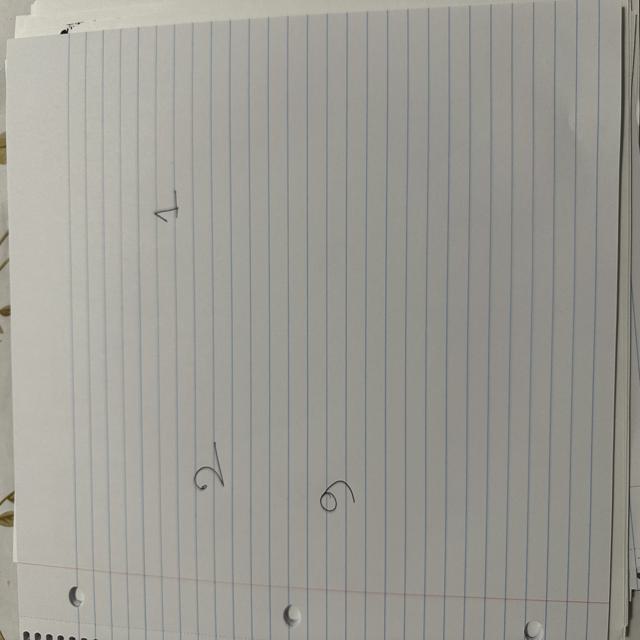 1
2
9